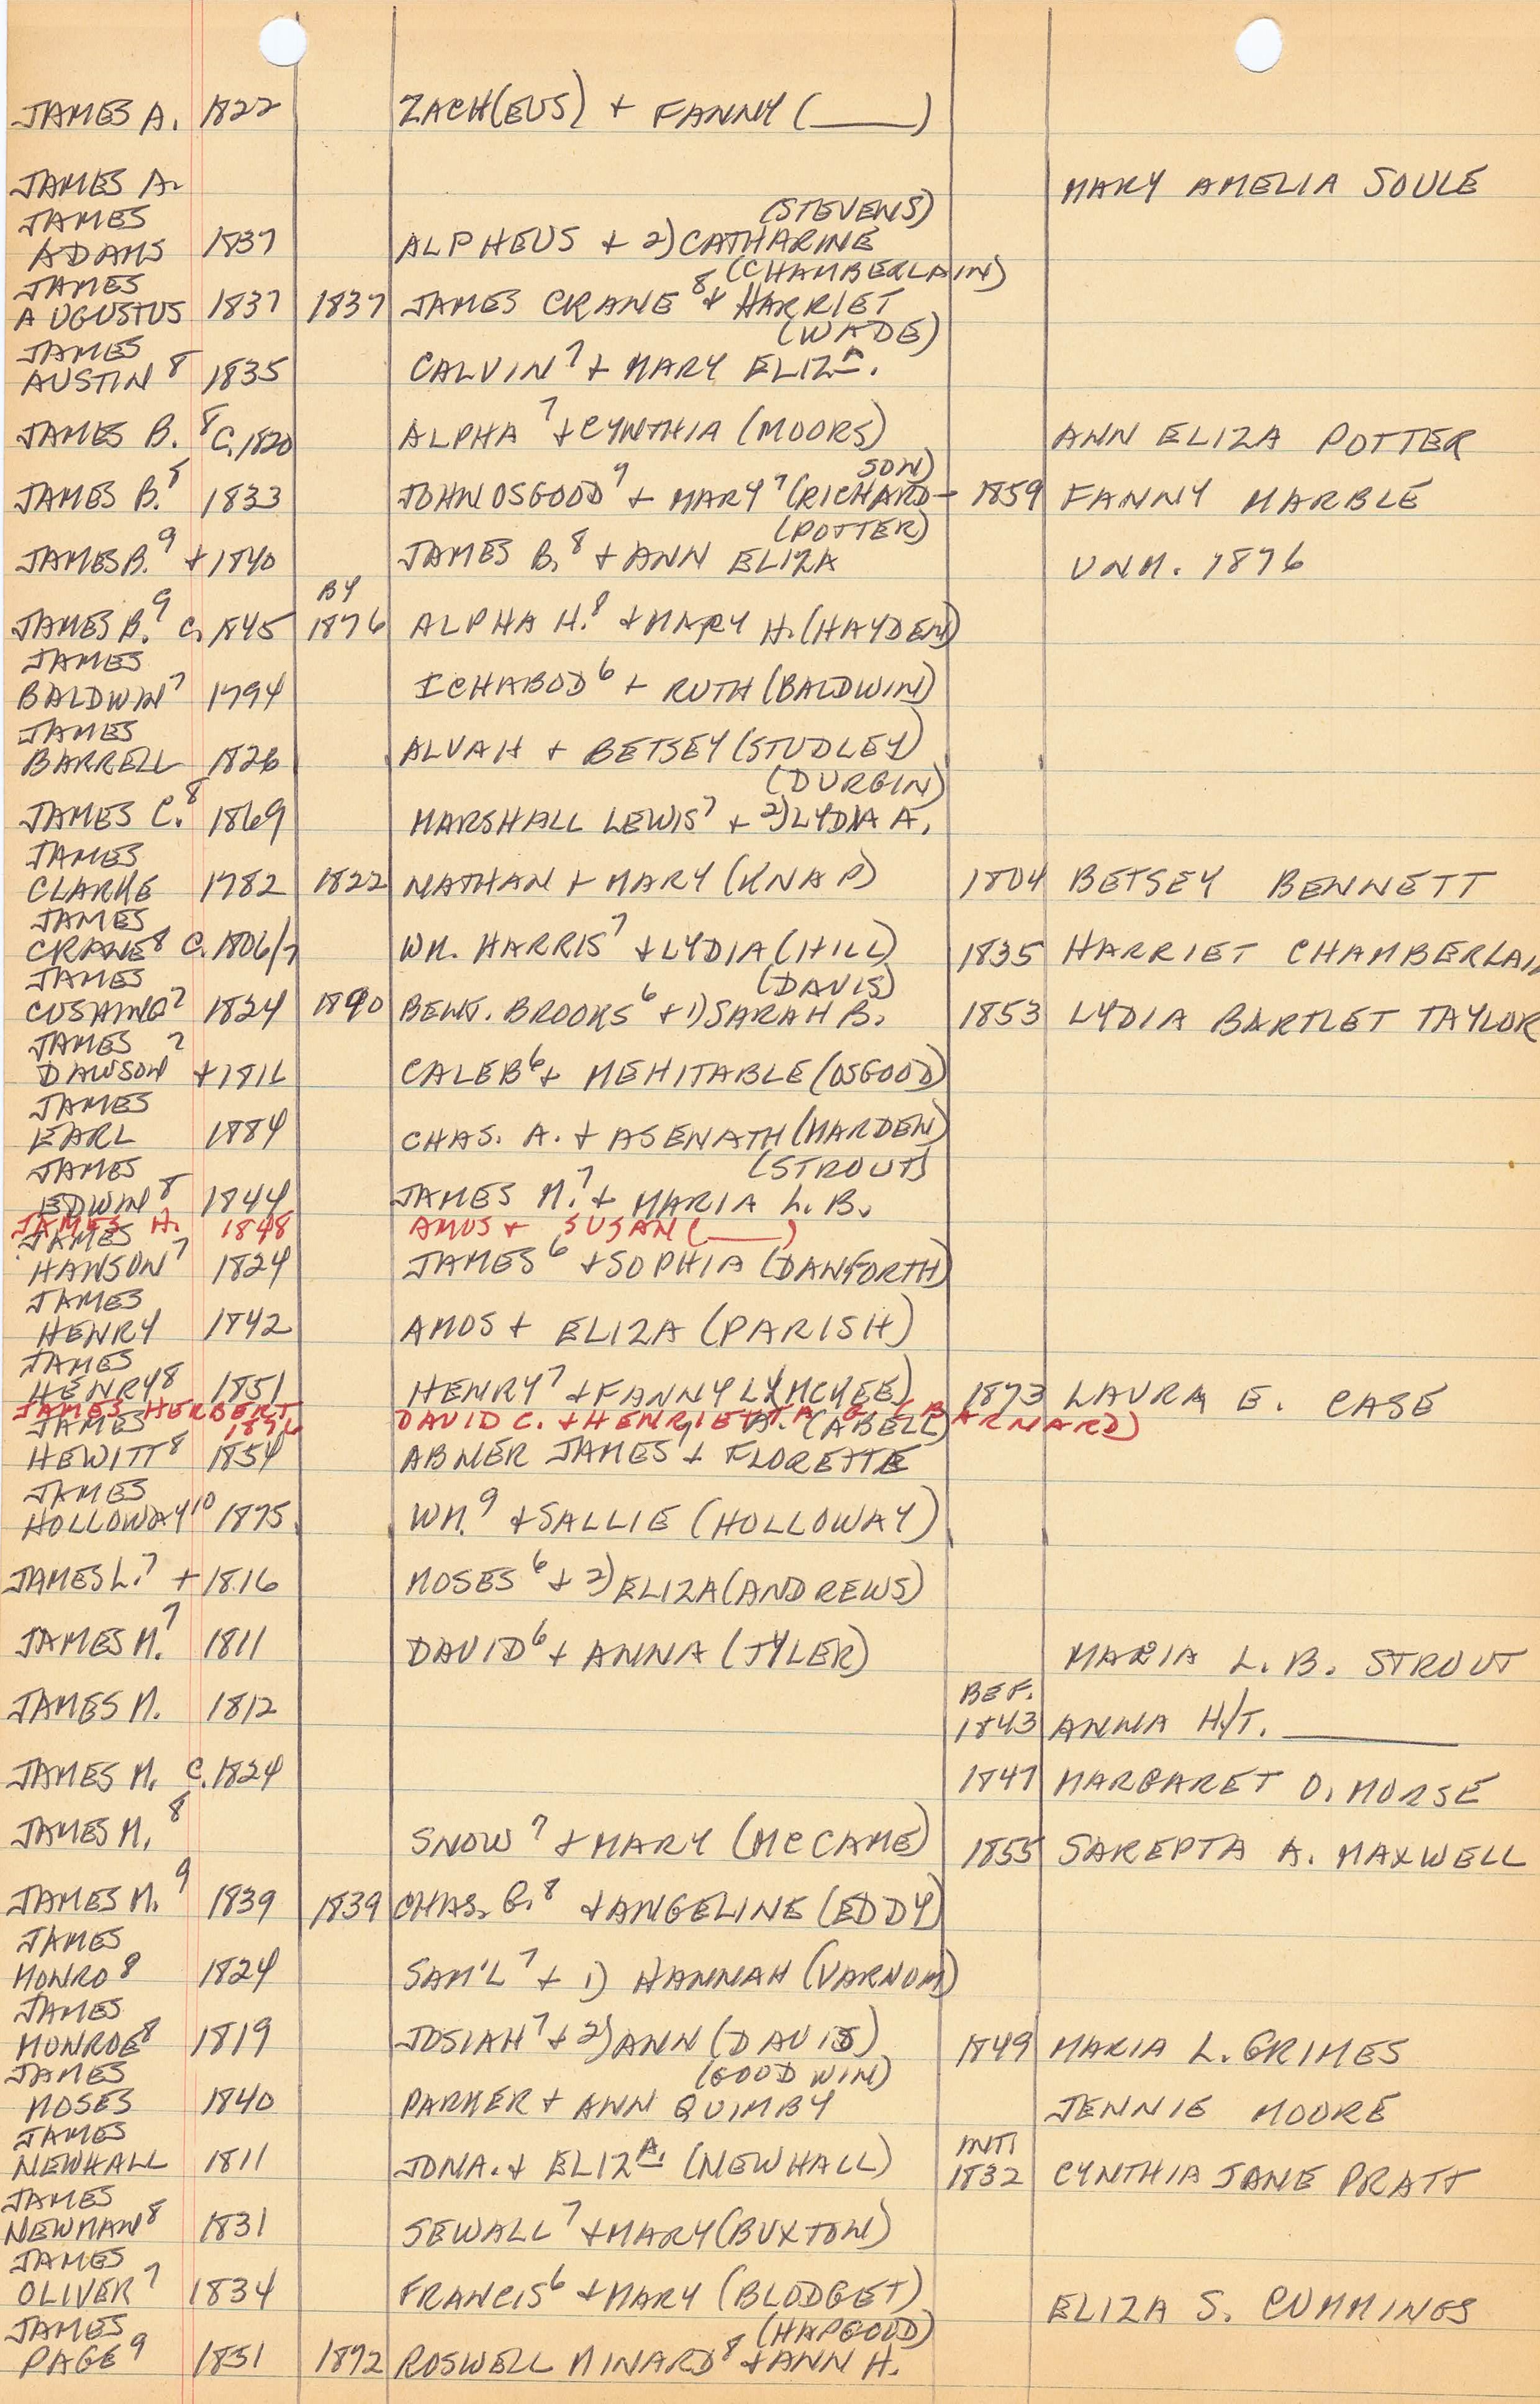 JAMES A. 1822 ZACH(EUS) + FANNY (____)
JAMES A. MARY AMELIA SOULE
JAMES (STEVENS)
ADAMS 1837 ALPHEUS + 2) CATHARINE
JAMES (CHAMBERLAIN)
AUGUSTUS 1837 1837 JAMES CRANE 8 + HARRIET
JAMES (WADE)
AUSTIN 8 1835 CALVIN 7 + MARY ELIZA.
JAMES B. 8 C. 1820 ALPHA 7 + CYNTHIA (MOORS) ANN ELIZA POTTER
SON)
JAMES B. 8 1833 JOHN OSGOOD 7 + MARY 7 (RICHARD- 1859 FANNY MARBLE
(POTTER)
JAMES B. 9 +1840 JAMES B. 8 + ANN ELIZA UNM. 1876
BY
JAMES B. 9 C. 1845 1876 ALPHA H. 8 + MARY H. (HAYDEN)
JAMES
BALDWIN 7 1794 ICHABOD 6 + RUTH (BALDWIN)
JAMES
BARRELL 1826 ALVAH + BETSEY (STUDLEY)
(DURGIN)
JAMES C. 8 1869 MARSHALL LEWIS 7 + 2) LYDIA A.
JAMES
CLARKE 1782 1822 NATHAN + MARY (KNAP) 1804 BETSEY BENNETT
JAMES
CRANE 8 C. 1806/7 WM. HARRIS 7 + LYDIA (HILL) 1835 HARRIET CHAMBERLAIN
JAMES (DAVIS)
CUSHING 7 1824 1890 BENJ. BROOKS 6 + 1) SARAH B. 1853 LYDIA BARTLET TAYLOR
JAMES 7
DAWSON +1816 CALEB 6 + MEHITABLE (OSGOOD)
JAMES
EARL 1884 CHAS. A. + ASENATH (MARDEN)
JAMES (STROUT)
EDWIN 8 1844 JAMES M. 7 + MARIA L. B.
JAMES H. 1848 AMOS + SUSAN (____)
JAMES
HANSON 7 1824 JAMES 6 + SOPHIA (DANFORTH)
JAMES
HENRY 1842 AMOS + ELIZA (PARISH)
JAMES
HENRY 8 1851 HENRY 7 + FANNY L. (MCKEE) 1873 LAURA E. CASE
JAMES HERBERT DAVID C. + HENRIETTA G. (BARNARD)
JAMES A. (ABELL)
HEWITT 8 1854 ABNER JAMES 7 + FLORETTE
JAMES
HOLLOWAY 10 1875 WM. 9 + SALLIE (HOLLOWAY)
JAMES L. 7 +1816 MOSES 6 + 2) ELIZA (ANDREWS)
JAMES M. 7 1811 DAVID 6 + ANNA (TYLER) MARIA L. B. STROUT
BEF.
JAMES M. 1812 1843 ANNA H/T. ______
JAMES M. C. 1824 1847 MARGARET O. MORSE
JAMES M. 8 SNOW 7 + MARY (MCCAME) 1855 SAREPTA A. MAXWELL
JAMES M. 9 1839 1839 CHAS. G. 8 + ANGELINE (EDDY)
JAMES
MONRO 8 1824 SAM'L 7 + 1) HANNAH (VARNUM)
JAMES
MONROE 8 1819 JOSIAH 7 + 2) ANN (DAVIS) 1849 MARIA L. GRIMES
JAMES (GOODWIN)
MOSES 1840 PARKER + ANN QUIMBY JENNIE MOORE
JAMES INT.
NEWHALL 1811 JONA. + ELIZA. (NEWHALL) 1832 CYNTHIA JANE PRATT
JAMES
NEWMAN 8 1831 SEWALL 7 + MARY (BUXTON)
JAMES
OLIVER 7 1834 FRANCIS 6 + MARY (BLODGET) ELIZA S. CUMMINGS
JAMES (HAPGOOD)
PAGE 9 1851 1872 ROSWELL MINARD 8 + ANN H.